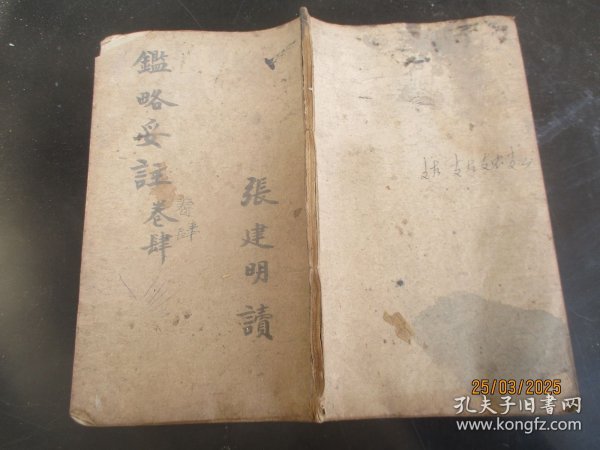 鑑略妥註卷肆
卷肆
張建明讀
25/03/2025
孔夫子旧书网
www.kongfz.com